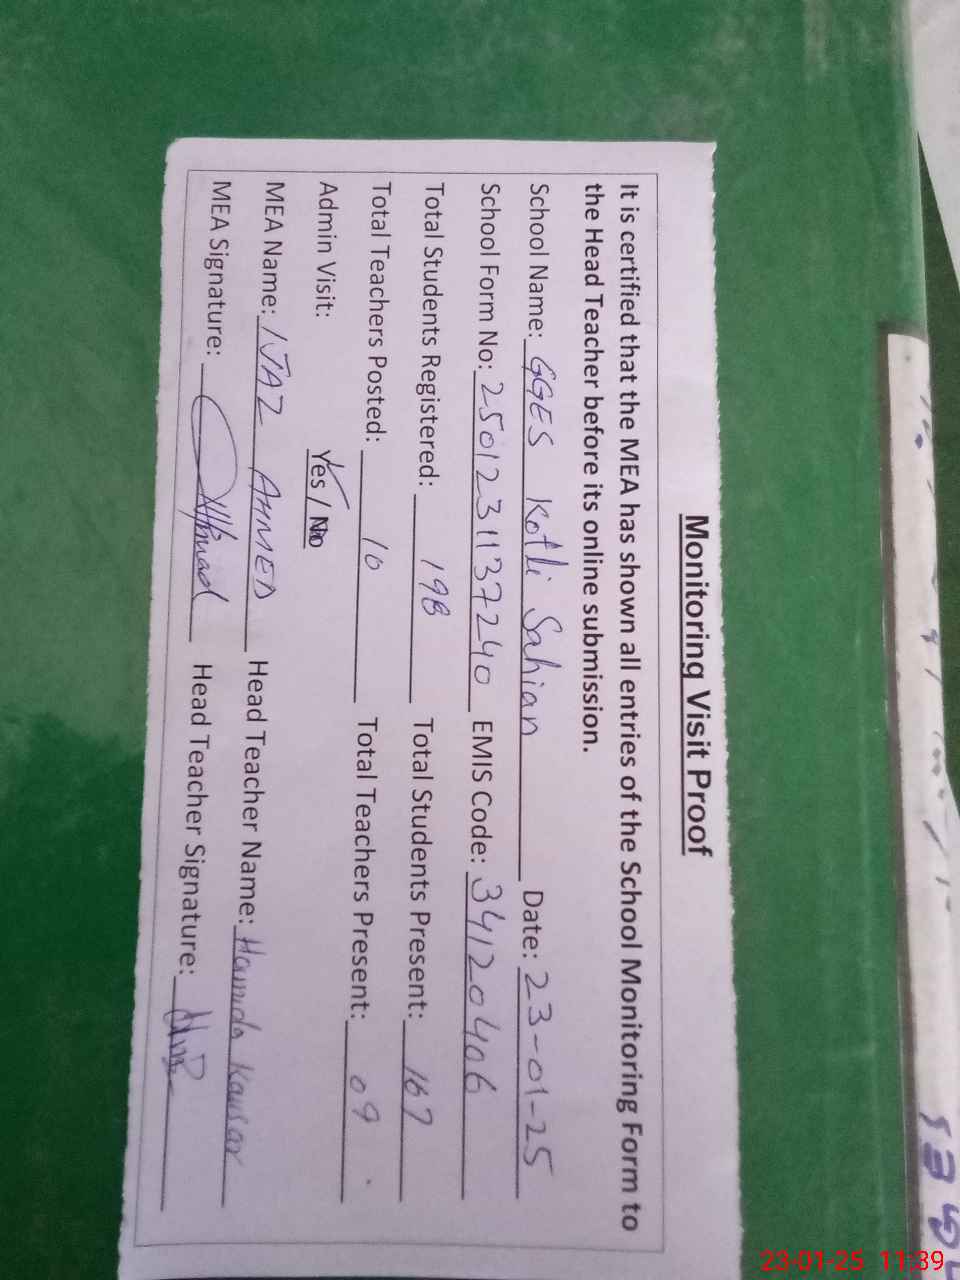 Monitoring Visit Proof
It is certified that the MEA has shown all entries of the School Monitoring Form to
the Head Teacher before its online submission.
School Name: GGES Kotli Sahian Date: 23-01-25
School Form No: 2501231137240 EMIS Code: 34120406
Total Students Registered: 198 Total Students Present: 167
Total Teachers Posted: 10 Total Teachers Present: 09
Admin Visit: Yes / No
MEA Name: IJAZ AHMED Head Teacher Name: Hamida Kausar
MEA Signature: Head Teacher Signature:
23-01-25 11:39